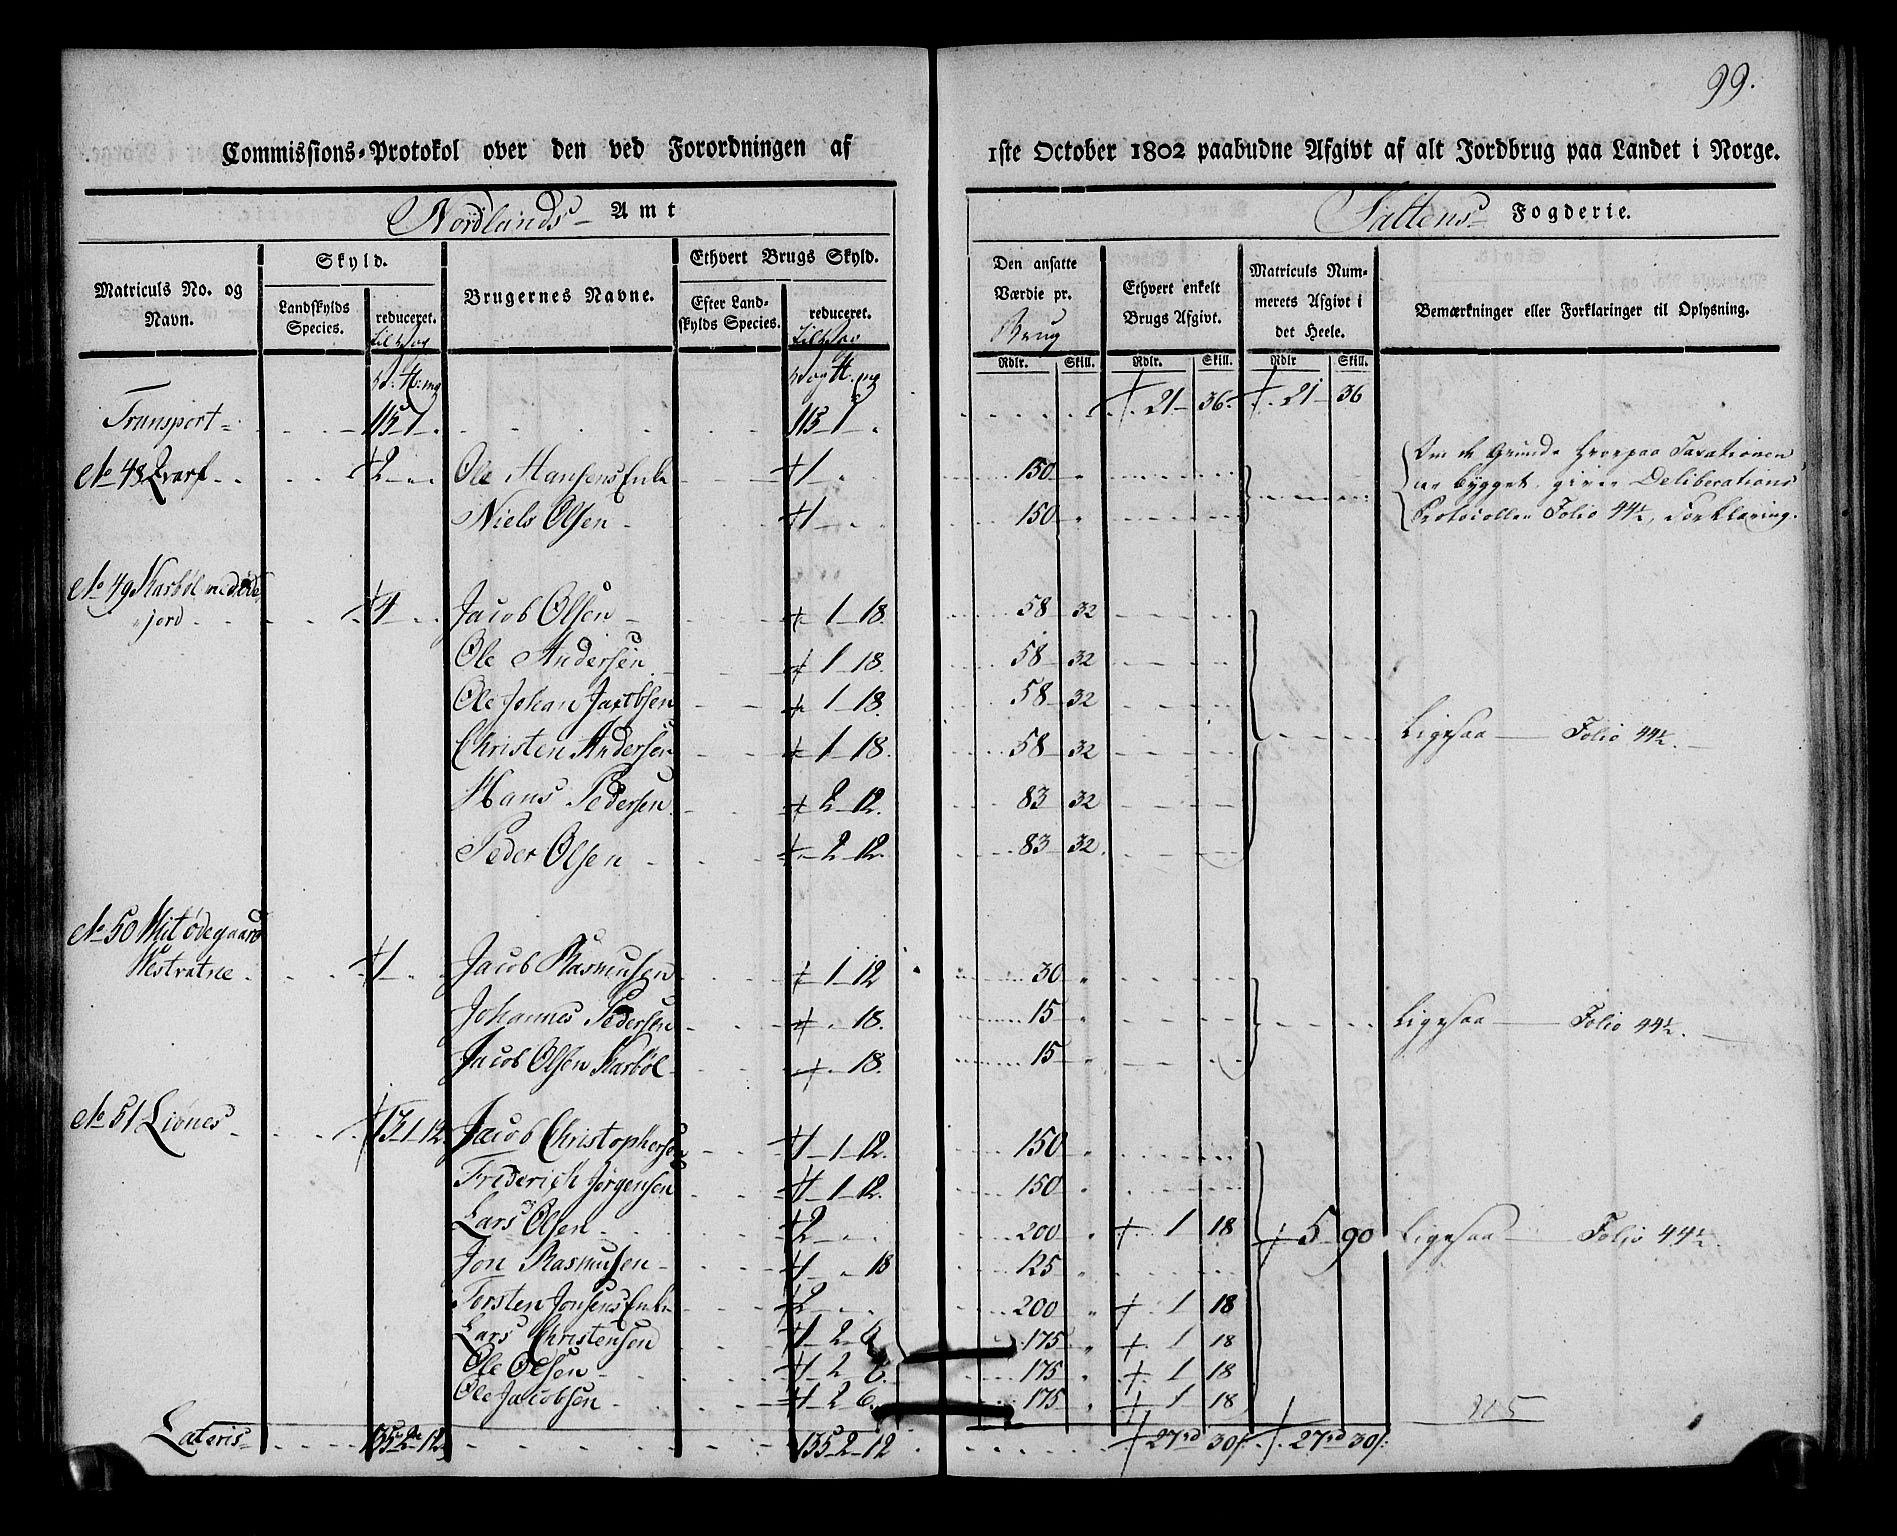 99.
Commissions-Protokol over den ved Forordningen af 1ste October 1802 paabudne Afgivt af alt Jordbrug paa Landet i Norge.
Nordlands Amt
Saltens Fogderie.
Matriculs No. og Navn.
Skyld.
Landskylds Species.
reduceret. til Wog
Brugernes Navne.
Ethvert Brugs Skyld.
Efter Landskylds Species.
reduceret. til Wog
Den ansatte Værdie pr. Brug
Rdlr. Skill.
Ethvert enkelt Brugs Afgivt.
Rdlr. Skill.
Matriculs Nummerets Afgivt i det Heele.
Rdlr Skill.
Bemærkninger eller Forklaringer til Oplysning.
Transport 115 1 113 1 21 36. 21 36
No 48 2 Ole Hansens Enke 1 150
Niels Olsen 1 150
Om de Grunde hvorpaa Taxationen
er bygget, giver Deliberations
Protocollen Folio 44½, Forklaring.
No 49 Karbøl med øde
jord 4 Jacob Olsen 1 18. 58 32
Ole Andersen 1 18. 58 32
Ole Johan Jacobsen 1 18. 58 32
Christen Andersen 1 18. 58 32 Ligesaa Folio 44½.
Hans Pedersen 2 12. 83 32
Peder Olsen 2 12. 83 32.
No 50 ødegaard
Westvatne 1 Jacob Rasmusen 1 12 30
Johannes Pedersen 18. 15 Ligesaa Folio 44½.
Jacob Olsen Karbøl 18. 15
No 51 Liønes 13 1 12 Jacob Christophersen 1 1 12. 150
Frederich Jørgensen 1 1 12. 150
Lars Olsen 2 200 1 18 5 90 Ligesaa Folio 44½.
Jon Rasmusen 1 18 125
Torsten Jonsens Enke 2 200 1 18
Lars Christensen 1 2 6 175 1 18
Ole Olsen 1 2 6. 175 1 18
Ole Jacobsen 1 2 6. 175 1 18
Lateris 135 2 12 135 2 12 27rd 30s. 27rd 30s.